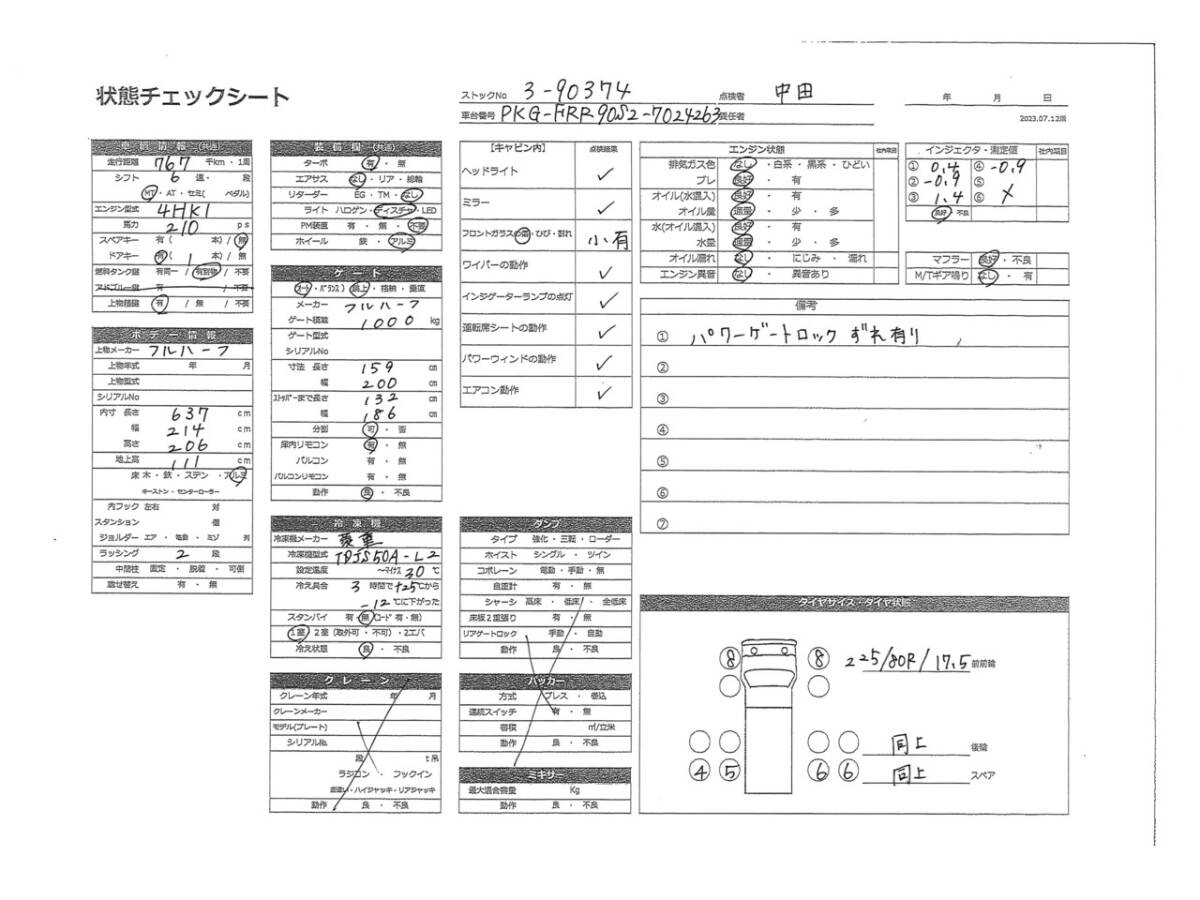 状態チェックシート
ストックNo 3-90374
点検者 中田
年 月 日
車台番号 PKG-FRR90S2-7024263
責任者
2023.07.12版
車輌情報(共通)
走行距離 767 千km・1周
シフト 6 速・ 段
MT・AT・セミ( ペダル)
エンジン型式 4HK1
馬力 210 ps
スペアキー 有( 本)/無
ドアキー 有( 1 本)/無
燃料タンク鍵 有同一/有別物/不要
アドブルー鍵 有 / 不要
上物扉鍵 有 / 無 / 不要
ボデー情報
上物メーカー フルハーフ
上物年式 年 月
上物型式
シリアルNo
内寸 長さ 637 cm
幅 214 cm
高さ 206 cm
地上高 111 cm
床 木・鉄・ステン・アルミ
キーストン・センターローラー
内フック 左右 対
スタンション 個
ジョルダー エア・電動・ミゾ 列
ラッシング 2 段
中間柱 固定・脱着・可倒
載せ替え 有・無
装備欄(共通)
ターボ 有・無
エアサス なし・リア・総輪
リターダー EG・TM・なし
ライト ハロゲン・ディスチャ・LED
PM装置 有・無・不要
ホイール 鉄・アルミ
ゲート
メーカー フルハーフ
ゲート積載 1000 kg
ゲート型式
シリアルNo
寸法 長さ 159 cm
幅 200 cm
ストッパーまで長さ 132 cm
幅 186 cm
分割 可・否
庫内リモコン 有・無
バルコン 有・無
バルコンリモコン 有・無
動作 良・不良
冷凍機
冷凍機メーカー 菱重
冷凍機型式 TDJS50A-L2
設定温度 ～マイナス 30 ℃
冷え具合 3 時間で+25℃から
-12℃に下がった
スタンバイ 有・無(コード 有・無)
1室・2室(取外可・不可)・2エバ
冷え状態 良・不良
クレーン
クレーン年式 年 月
クレーンメーカー
モデル(プレート)
シリアル№
段 t吊
ラジコン・フックイン
・ハイジャッキ・リアジャッキ
動作 良・不良
【キャビン内】 点検結果
ヘッドライト ✓
ミラー ✓
フロントガラスの傷・ひび・割れ 小、有
ワイパーの動作 ✓
インジゲーターランプの点灯 ✓
運転席シートの動作 ✓
パワーウィンドの動作 ✓
エアコン動作 ✓
ダンプ
タイプ 強化・三転・ローダー
ホイスト シングル・ツイン
コボレーン 電動・手動・無
自重計 有・無
シャーシ 高床・低床・全低床
床板2重張り 有・無
リアゲートロック 手動・自動
動作 良・不良
パッカー
方式 プレス・巻込
連続スイッチ 有・無
容積 ㎥/立米
動作 良・不良
ミキサー
最大混合容量 Kg
動作 良・不良
エンジン状態 社内項目
排気ガス色 なし・白系・黒系・ひどい
ブレ 良好・有
オイル(水混入) 良好・有
オイル量 適量・少・多
水(オイル混入) 良好・有
水量 適量・少・多
オイル漏れ なし・にじみ・漏れ
エンジン異音 なし・異音あり
インジェクタ・測定値 社内項目
① 0.4 ④ -0.9
② -0.9 ⑤
③ 1.4 ⑥ ×
良好・不良
マフラー 良好・不良
M/Tギア鳴り なし・有
備考
① パワーゲートロック ずれ有り
②
③
④
⑤
⑥
⑦
タイヤサイズ・タイヤ状態
8 8 225/80R/17.5 前前輪
同上 後輪
4 5 6 6 同上 スペア